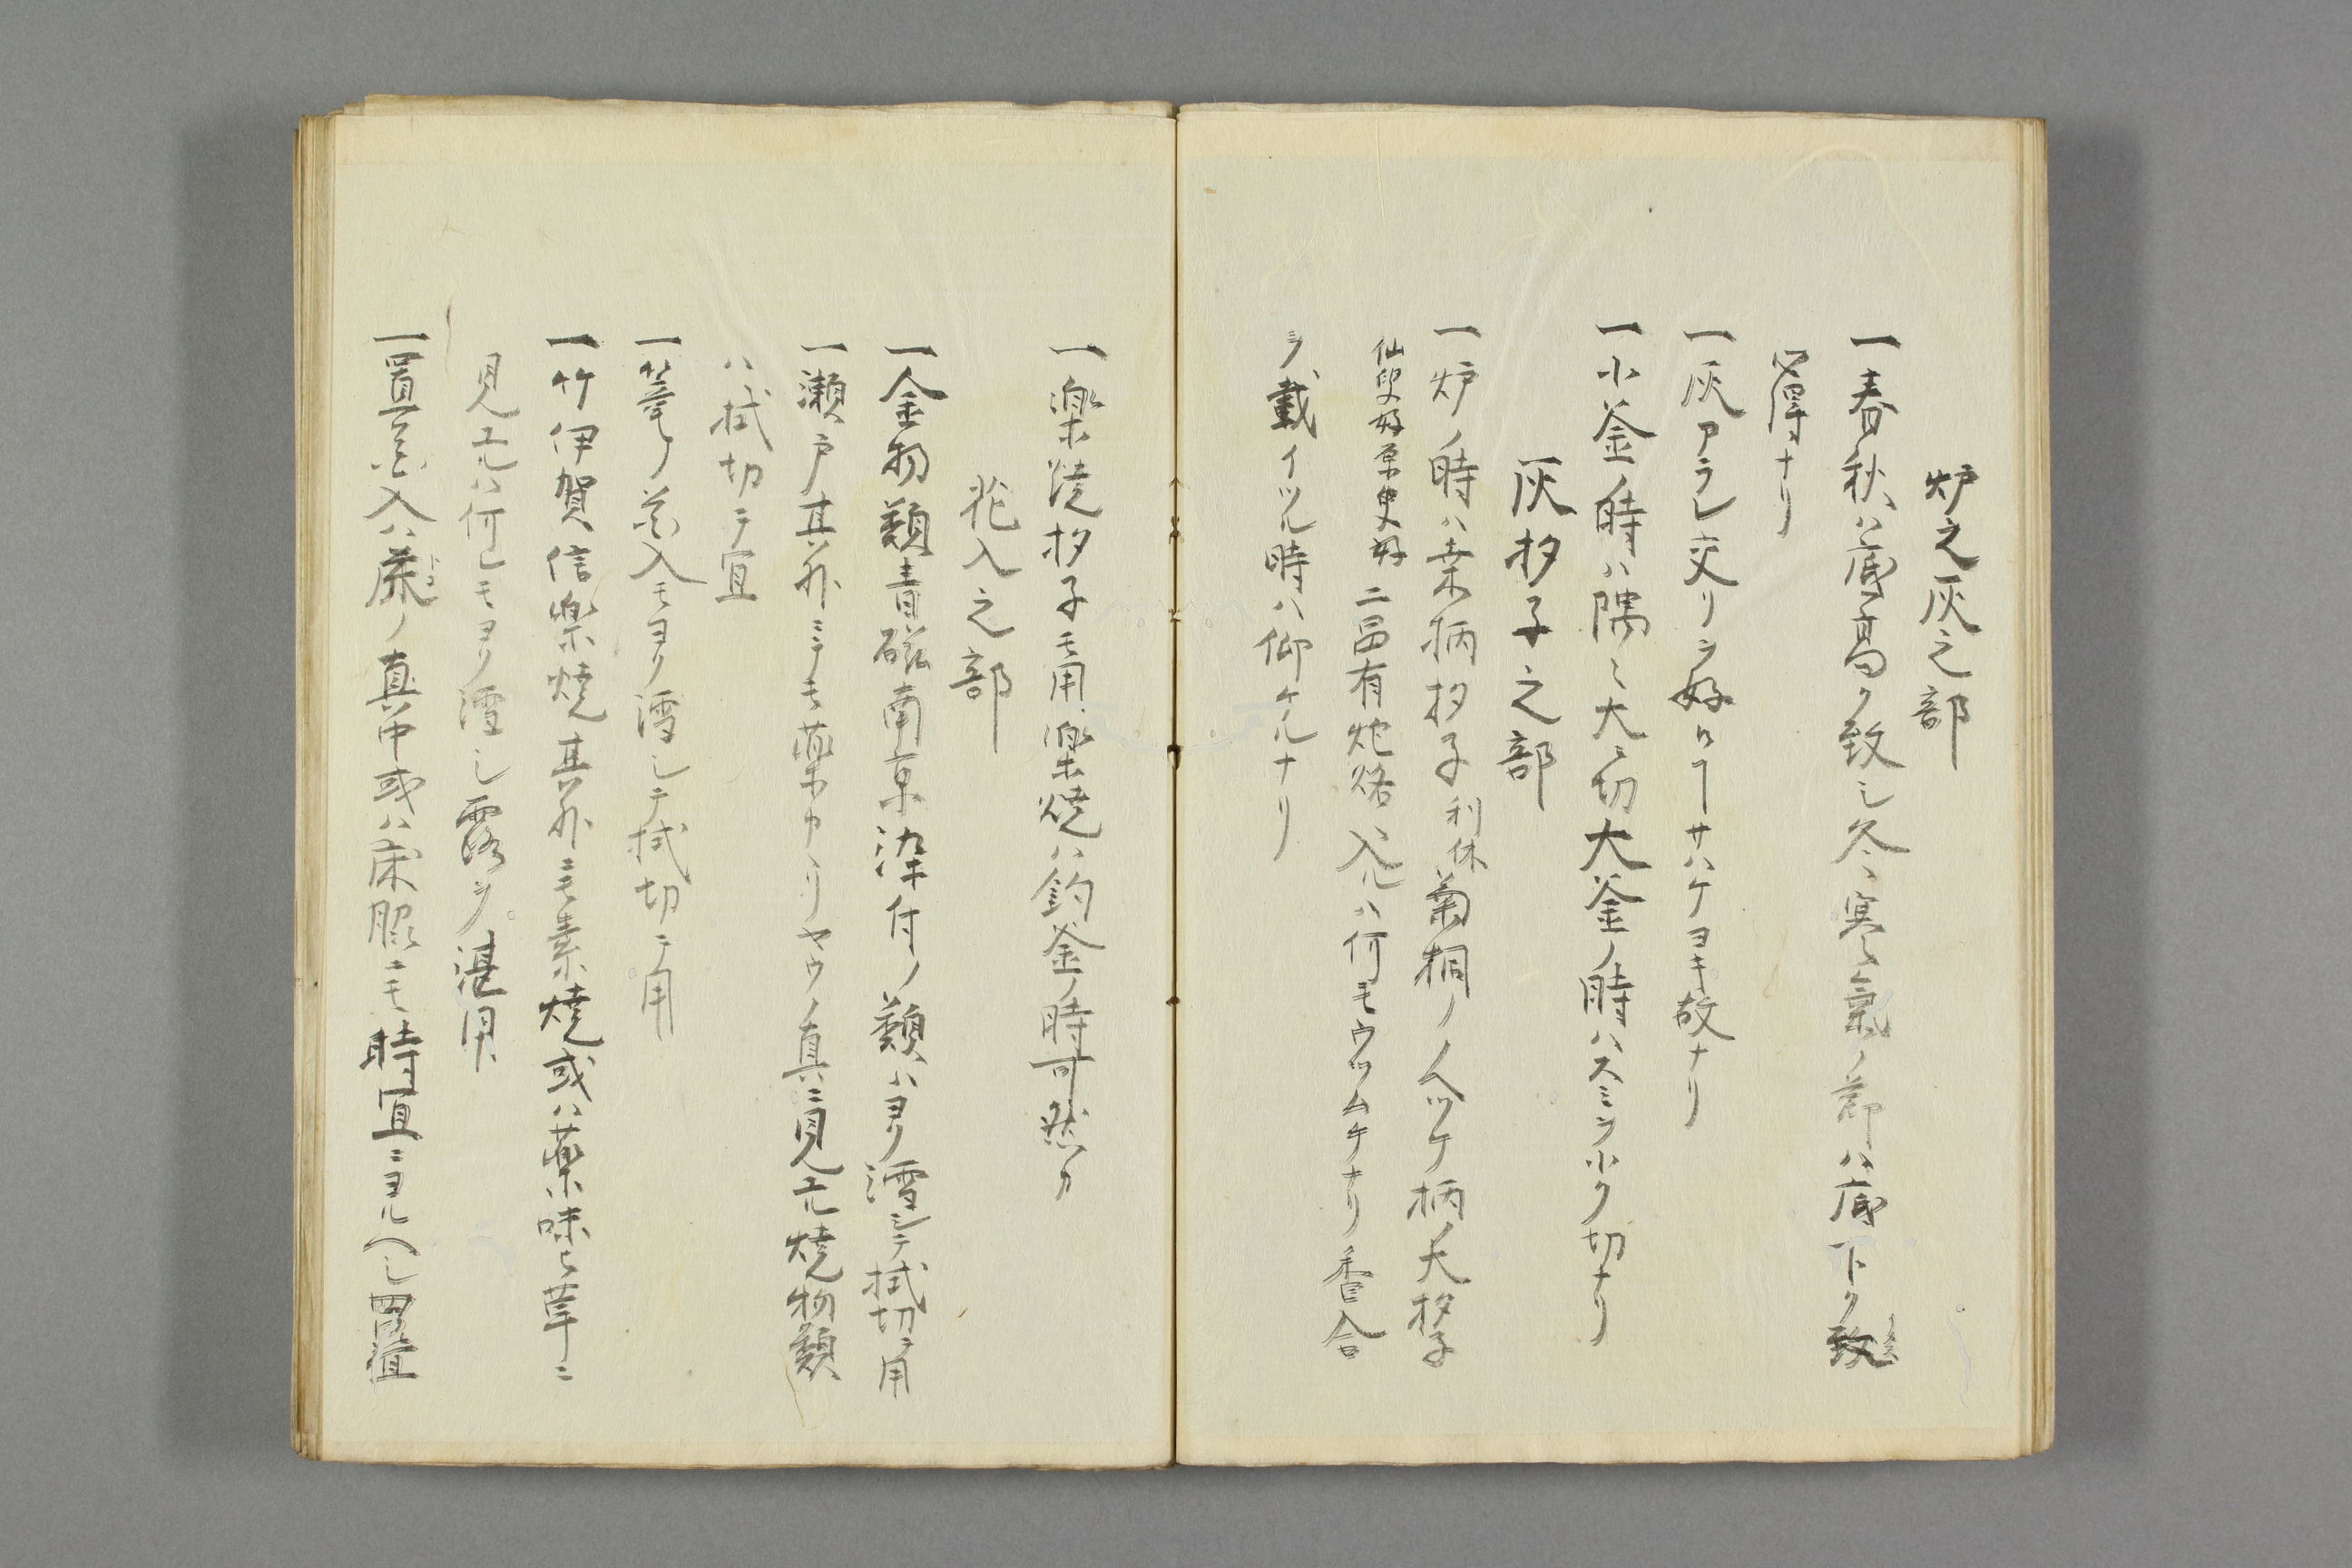 炉之灰之部
一春秋ハ底高ク致シ冬ハ寒氣ノ節ハ底下ク致
心得ナリ
一灰アラレ交リヲ好ムヿサハケヨキ故ナリ
一小釜ノ時ハ隅ミ大ニ切大釜ノ時ハスミヲ小ク切ナリ
灰杓子之部
一炉ノ時ハ桑柄杓子利休菊桐ノヘツケ柄ノ大杓子
仙叟好原叟好二品有炮烙ヘ入ルハ何モウツムケナリ香合
ヲ載イツル時ハ仰ケルナリ
一楽焼杓子モ用楽焼ハ釣釜ノ時可然カ
花入之部
一金物類青磁南京染付ノ類ハヨリ湿シテ拭切テ用
一瀬戸其外ニテモ薬カヽリヤウノ真ニ見エル焼物類
ハ拭切テ宜
一篭ノ花入モヨリ湿シテ拭切テ用
一竹伊賀信楽焼其外ニモ素焼或ハ薬味モ草ニ
見エルハ何レモヨリ湿シ露ヲ湛用
一置花入ハ床トコノ真中或ハ床脇ニモ時宜ニヨルヘシ四疊